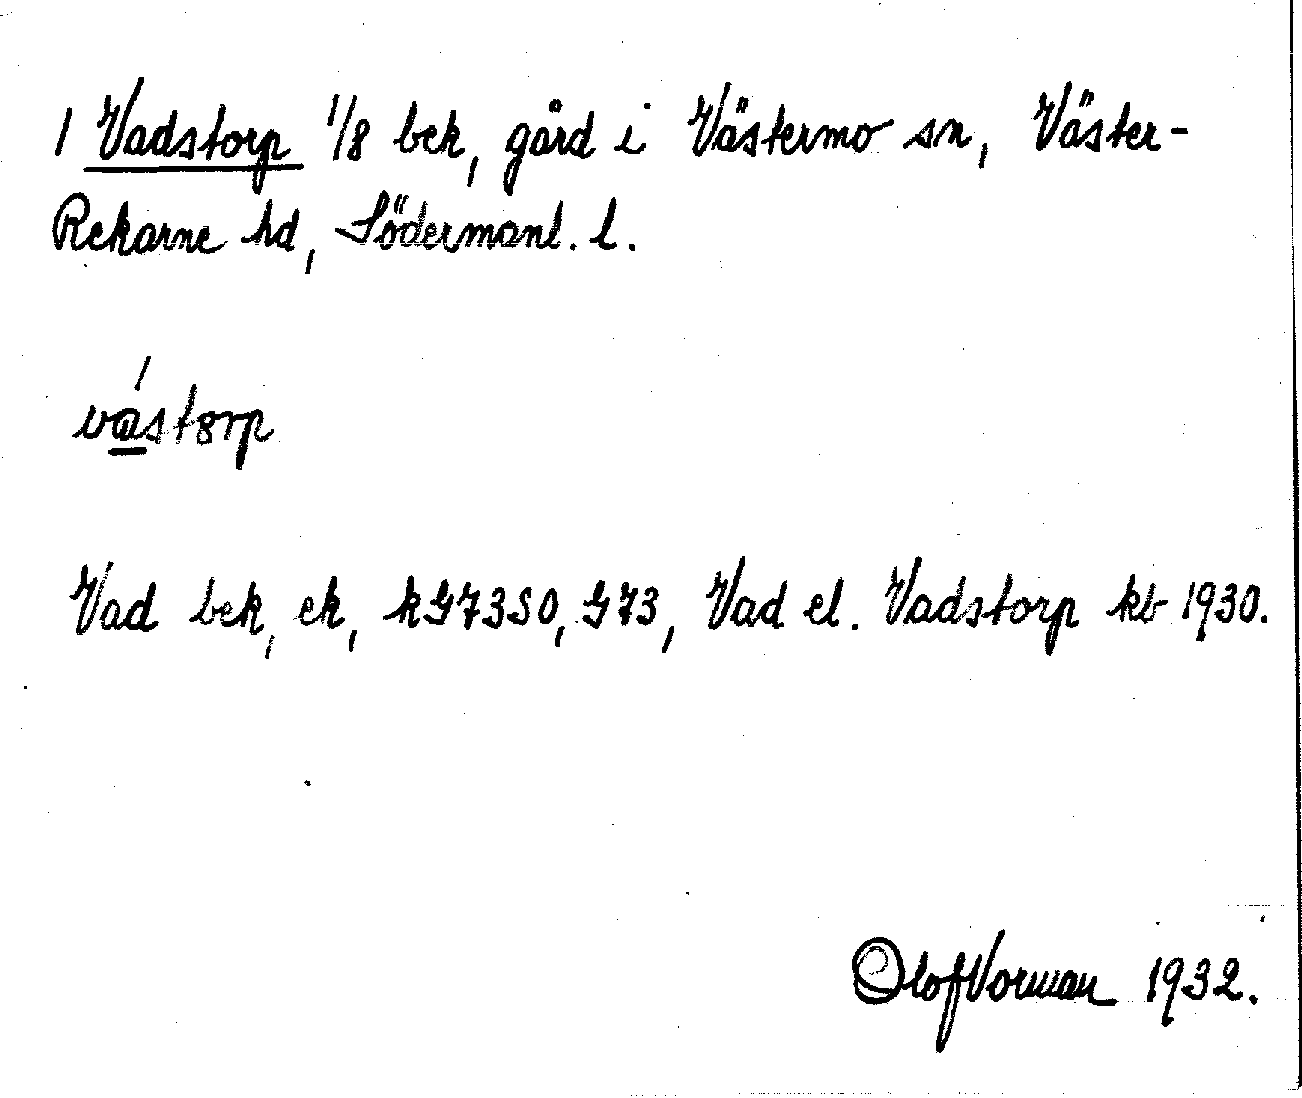 1 Vadstorp 1/8 bek, gård i Västermo sn, Väster-
Rekarne hd, Södermanl. l.
vástorp
Vad bek, ek, kG73SO, G73, Vad el. Vadstorp kb 1930.
Olof Vorman 1932.